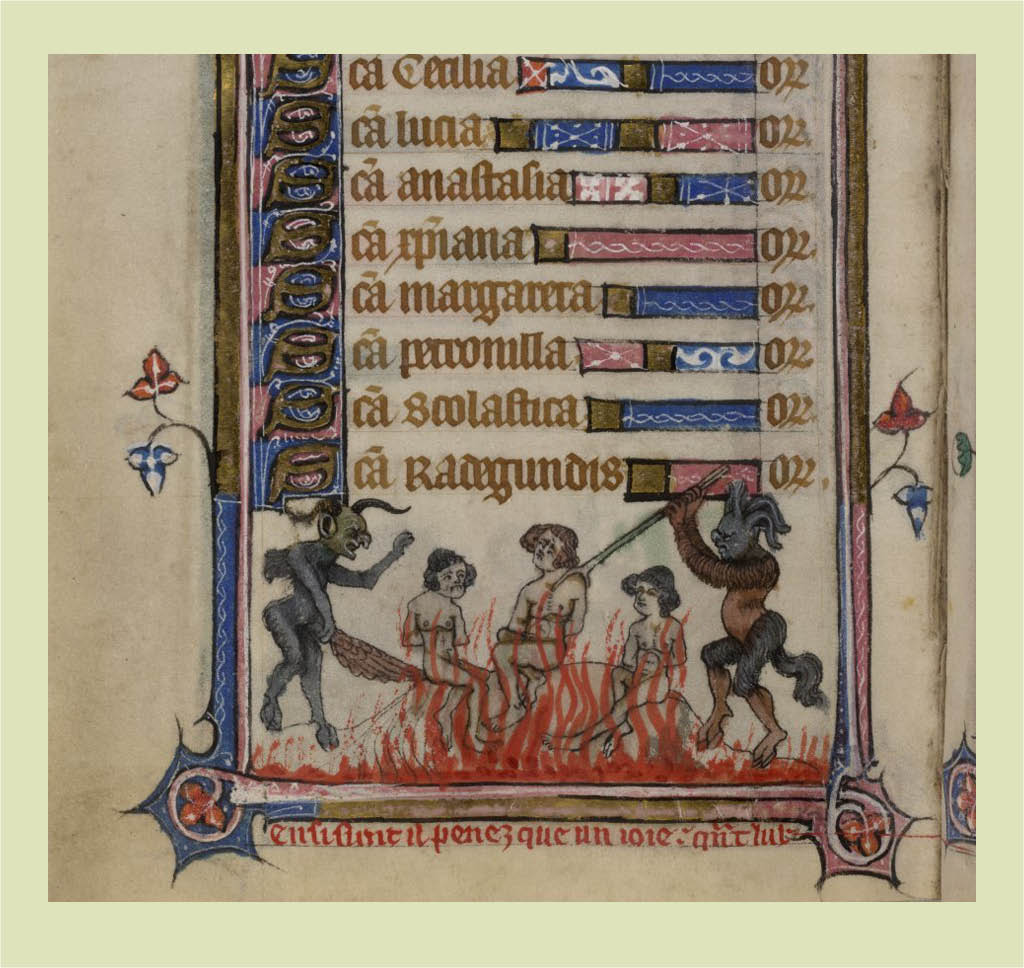 S cā Cecilia or
S cā lucia or.
S cā anastasia or.
S cā xp̄iana or.
S cā margareta or.
S cā petronilla or
S cā Scolastica or.
S cā Radegundis or.
il penez que un ioie :